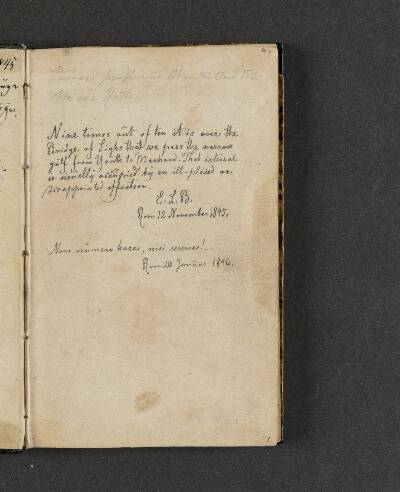 Nine times out of ten it is over the
Bridge of Sighs that we pass the narrow
gulf from Youth to Manhood. That interval
is usually occupied by an ill-placed or
disappointed affection.
E. L. B.
Rom 12 November 1845.
Non numero horas, nisi serenas!..
Rom 20 Januar 1846.
1845